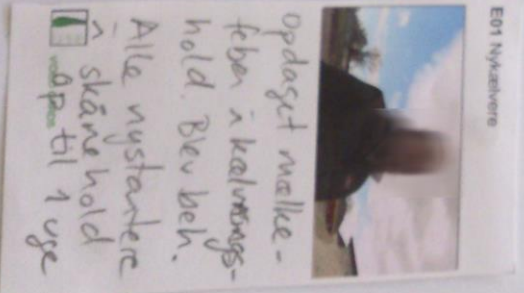 E01 Nykælvere
Opdaget mælke-
feber i kælvnings-
hold. Blev beh.
Alle nystartere
i skånehold
op til 1 uge